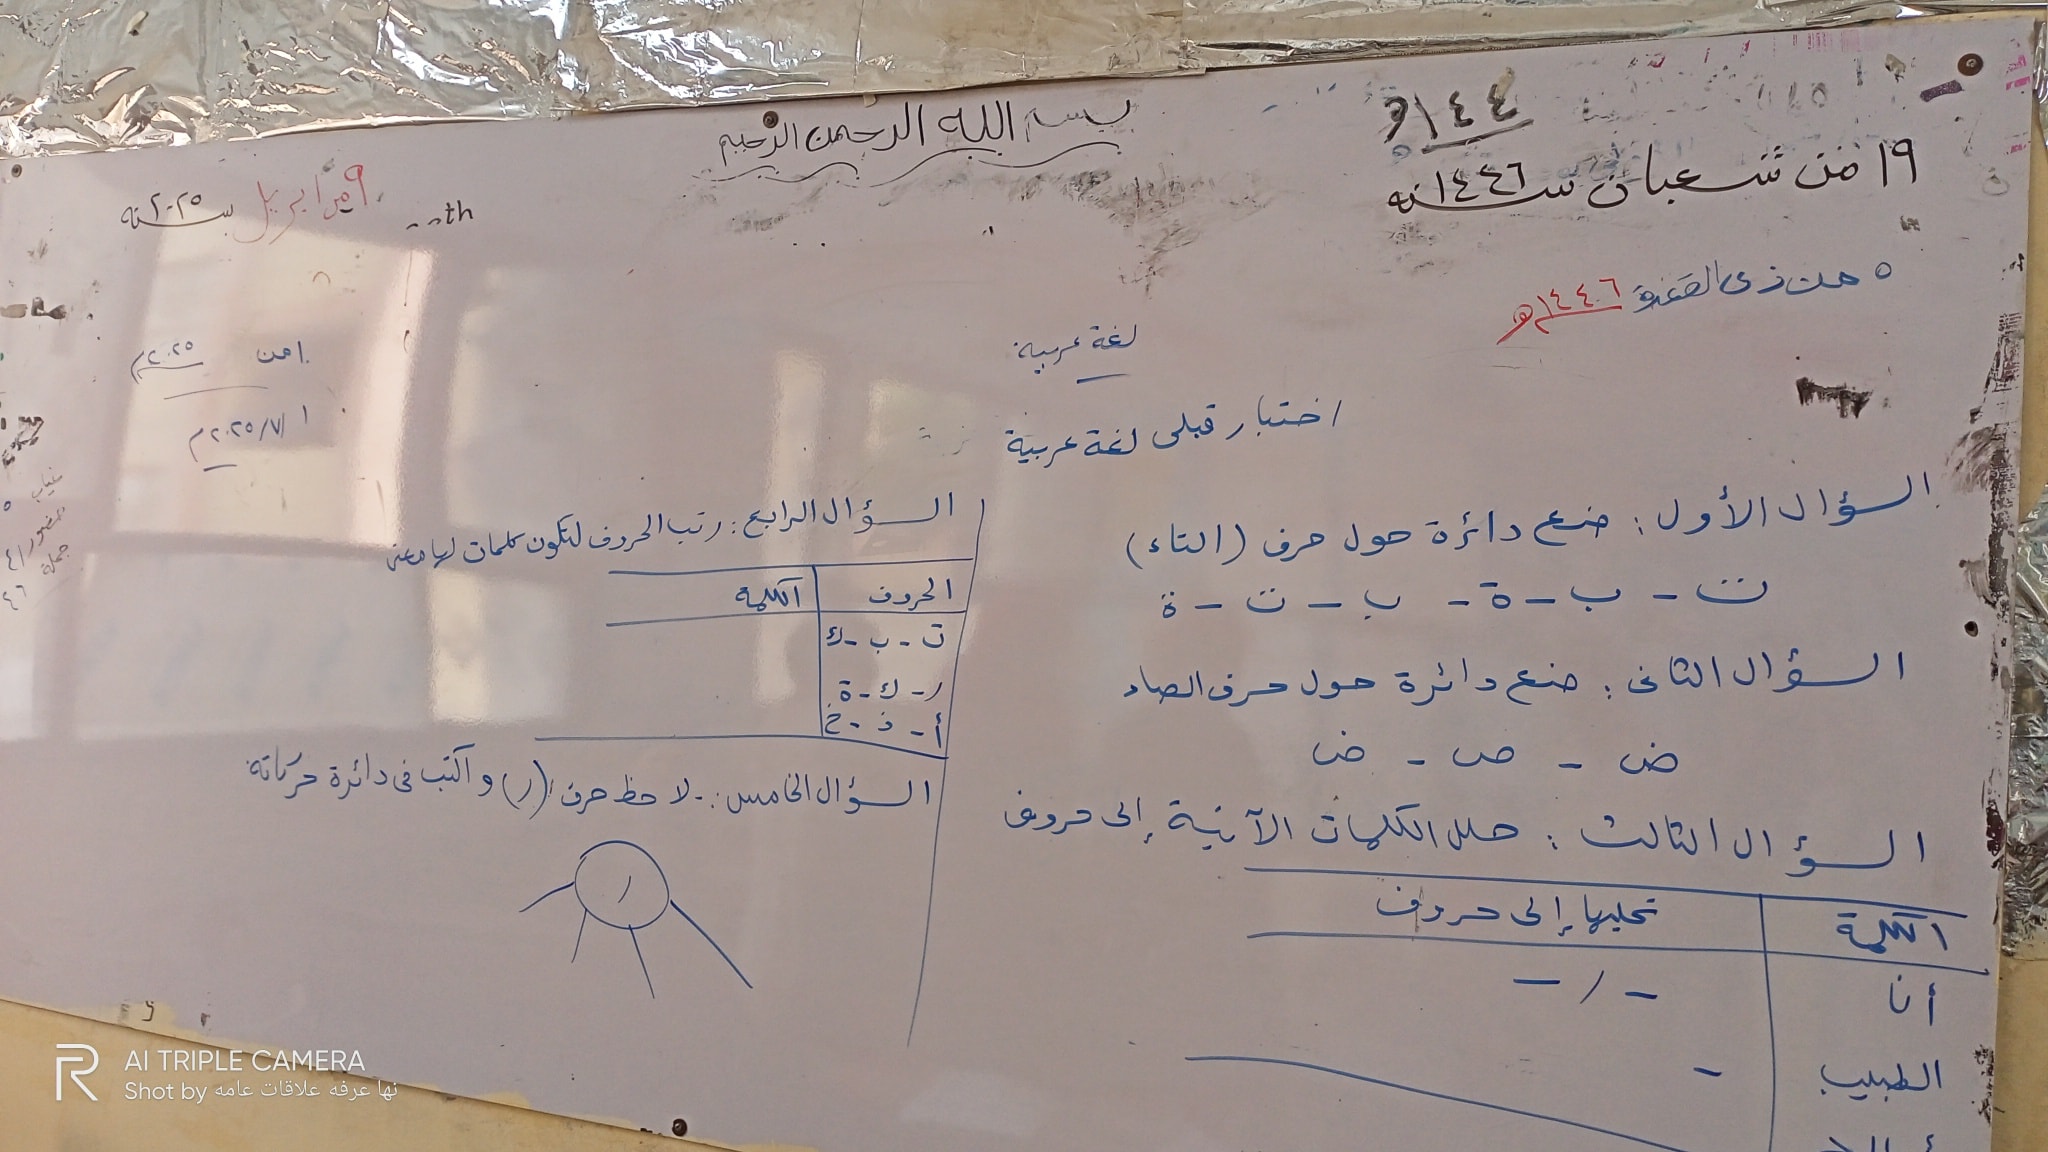 بسم الله الرحمن الرحيم
١٤٤
١٩ من شعبان سنه ١٤٤٦
٩ من ابريل سنه ٢٠٢٥
th
٥ من ذى القعدة ١٤٤٦ ه
١ من ٢٠٢٥م
١ /٢٠٢٥/٧م
غياب ٥
حضور ٤١
جملة ٤٦
لغة عربية
اختبار قبلى لغة عربية
السؤال الأول : ضع دائرة حول حرف (التاء)
ت - ب - ة - ب - ت - ة
السؤال الثانى : ضع دائرة حول حرف الصاد
ض - ص - ض
السؤال الثالث : حلل الكلمات الآتية إلى حروف
الكلمة تحليها إلى حروف
أنا - / -
الطبيب -
السؤال الرابع : رتب الحروف لتكون كلمات لها معنى
الحروف الكلمة
ت - ب - ك
ر - ك - ة
أ - ذ - خ
السؤال الخامس :- لاحظ حرف (ر) واكتب فى دائرة حركاته
ر
AI TRIPLE CAMERA
Shot by نها عرفه علاقات عامه